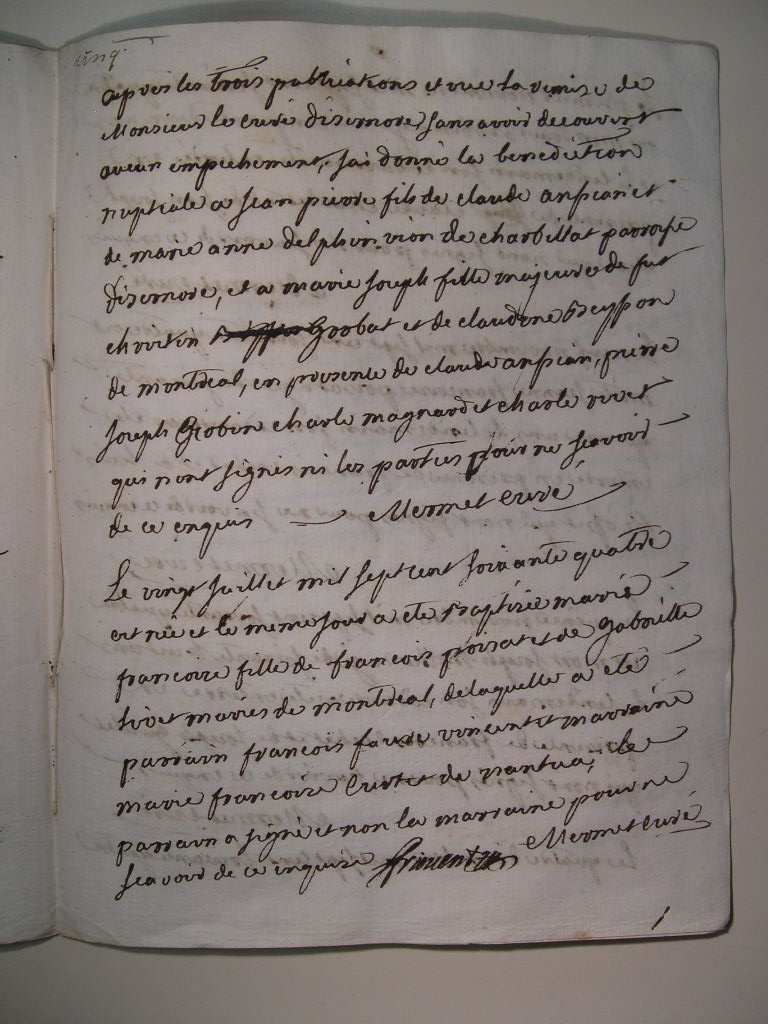 cinq
apres les trois publications et vue la remise de
Monsieur le curé disernore, sans avoir decouvert
aucun empechement, jai donné la benediction
nuptiale a jean pierre fils de claude anspian et
de marie anne delphin vion de charbillat parroisse
disernore, et a marie joseph fille majeure de fut
christin Gobat et de claudine Beysson
de montreal, en presence de claude anspian, pierre
joseph Gobin charle magnard et charle rivet
qui n'ont signés ni les parties pour ne scavoir
de ce enquis Mermet curé
Le vingt juillet mil sept cent soixante quatre
est née et le meme jour a eté baptisée marie
francoise fille de francois poisat et de Gabrielle
livet mariés de montreal, de laquelle a eté
parrain francois faure vincent et marraine
marie francoise Curtet de nantua, le
parrain a signé et non la marraine pour ne
scavoir de ce enquise Mermet curé